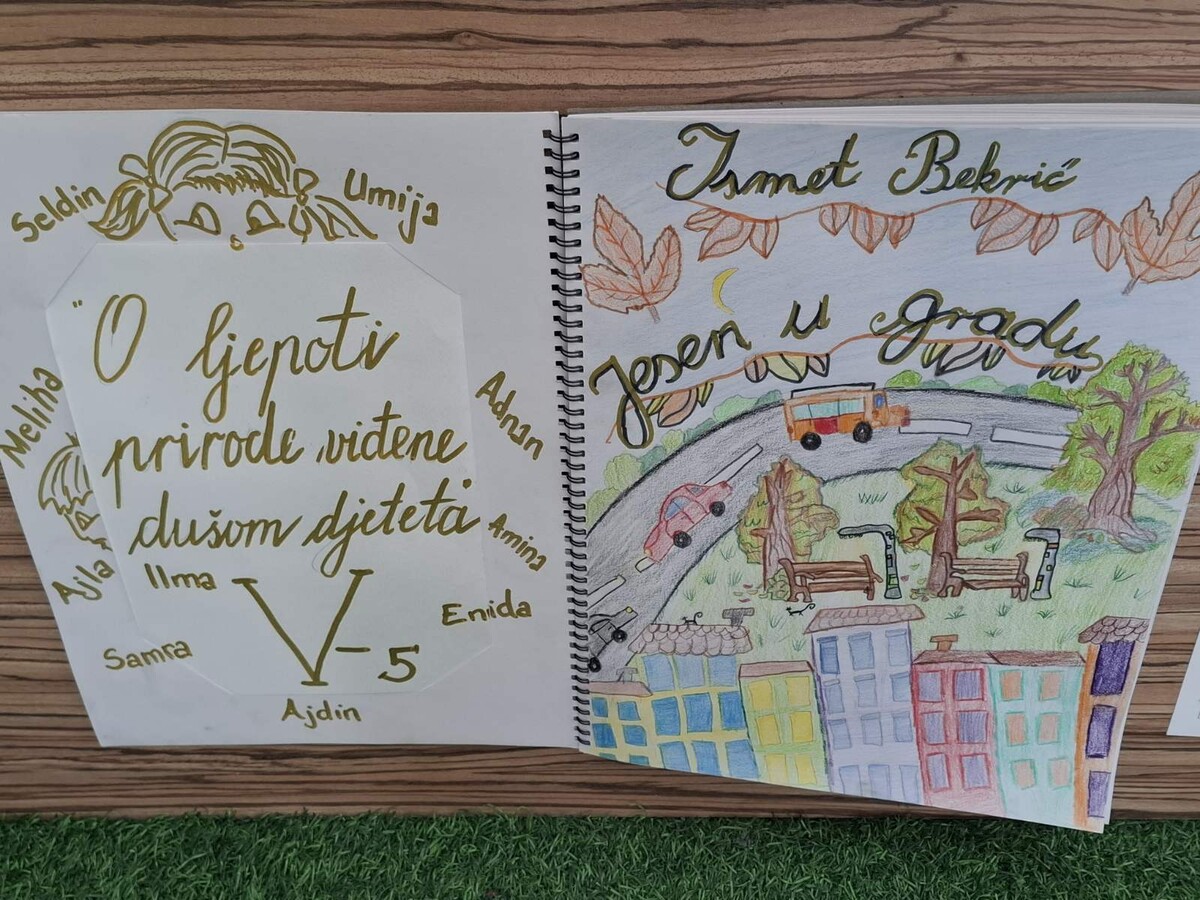 Seldin
Umija
"O ljepoti
prirode viđene
dušom djeteta"
Meliha
Adnan
Ajla
Ilma
Amina
V-5
Enida
Samra
Ajdin
Ismet Bekrić
Jesen u gradu